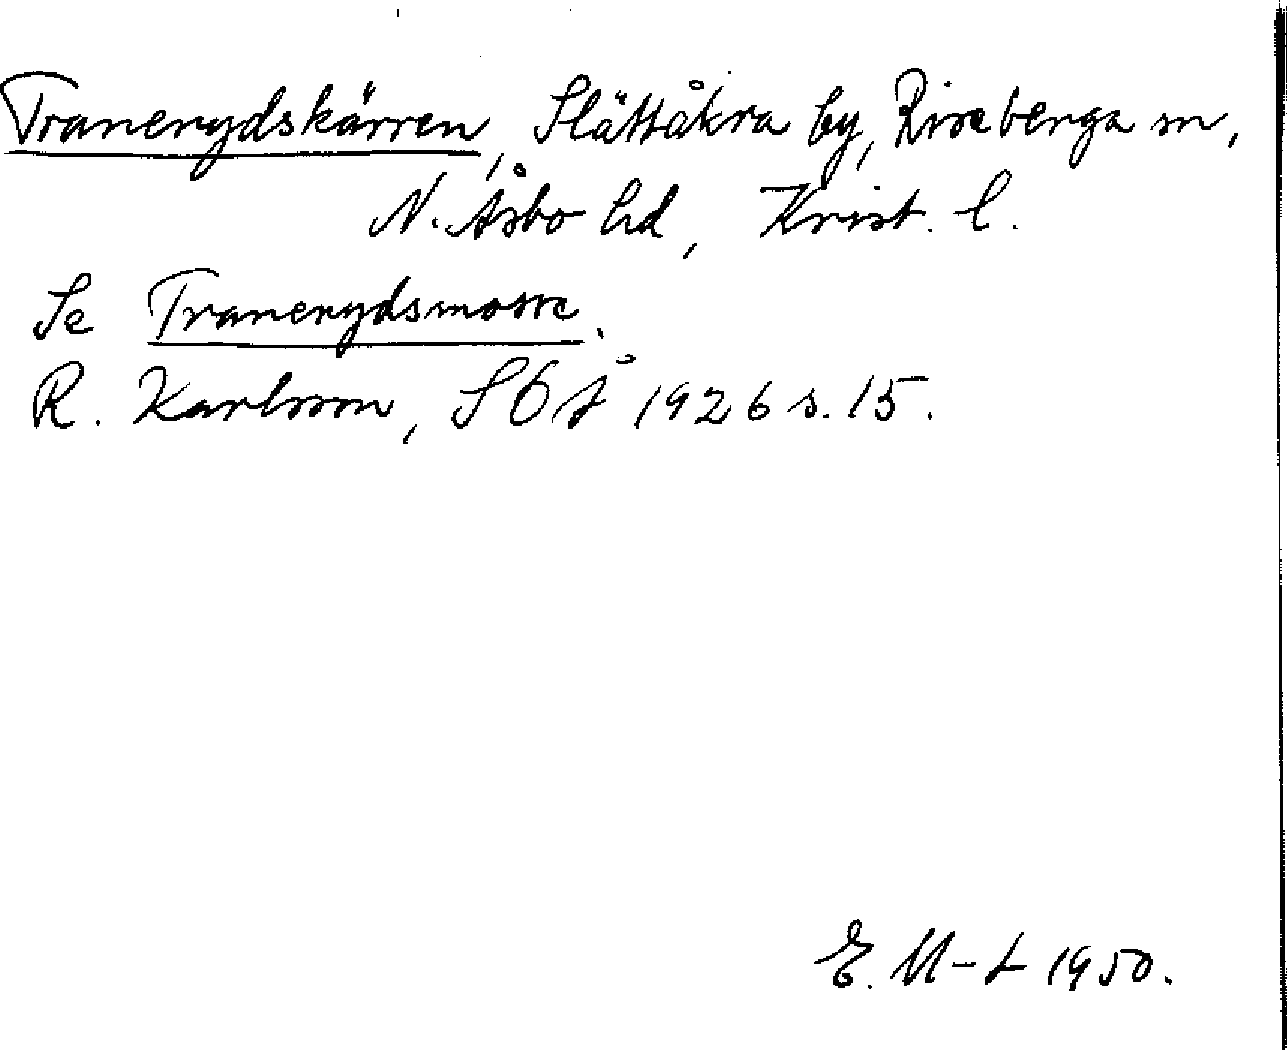 Tranerydskärren, Slättåkra by, Riseberga sn,
N. Åsbo hd, Krist. l.
Se Tranerydsmosse.
R. Karlsson, SOÅ 1926 s. 15.
E. M-L 1950.